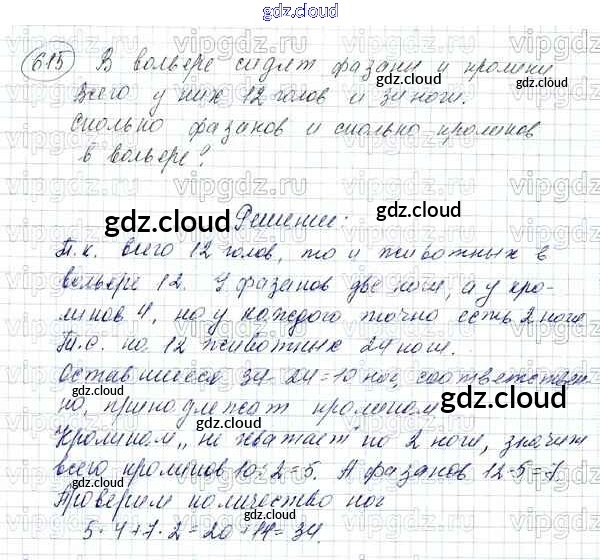 gdz.cloud
615 В вольере сидят фазаны и кролики
Всего у них 12 голов и 34 ноги.
Сколько фазанов и сколько кроликов
в вольере?
Решение:
Т.к. всего 12 голов, то и животных в
вольере 12. У фазанов две ноги, а у кро-
ликов 4, но у каждого точно есть 2 ноги
Т.е. на 12 животных 24 ноги.
Оставшиеся 34-24=10 ног, соответствен
но, принадлежат кроликам
"Кроликам" не хватает по 2 ноги, значит
всего кроликов 10:2=5. А фазанов 12-5=7.
Проверим количество ног
5·4+7·2=20+14=34.
gdz.cloud
gdz.cloud
gdz.cloud
gdz.cloud
gdz.cloud
vipgdz.ru